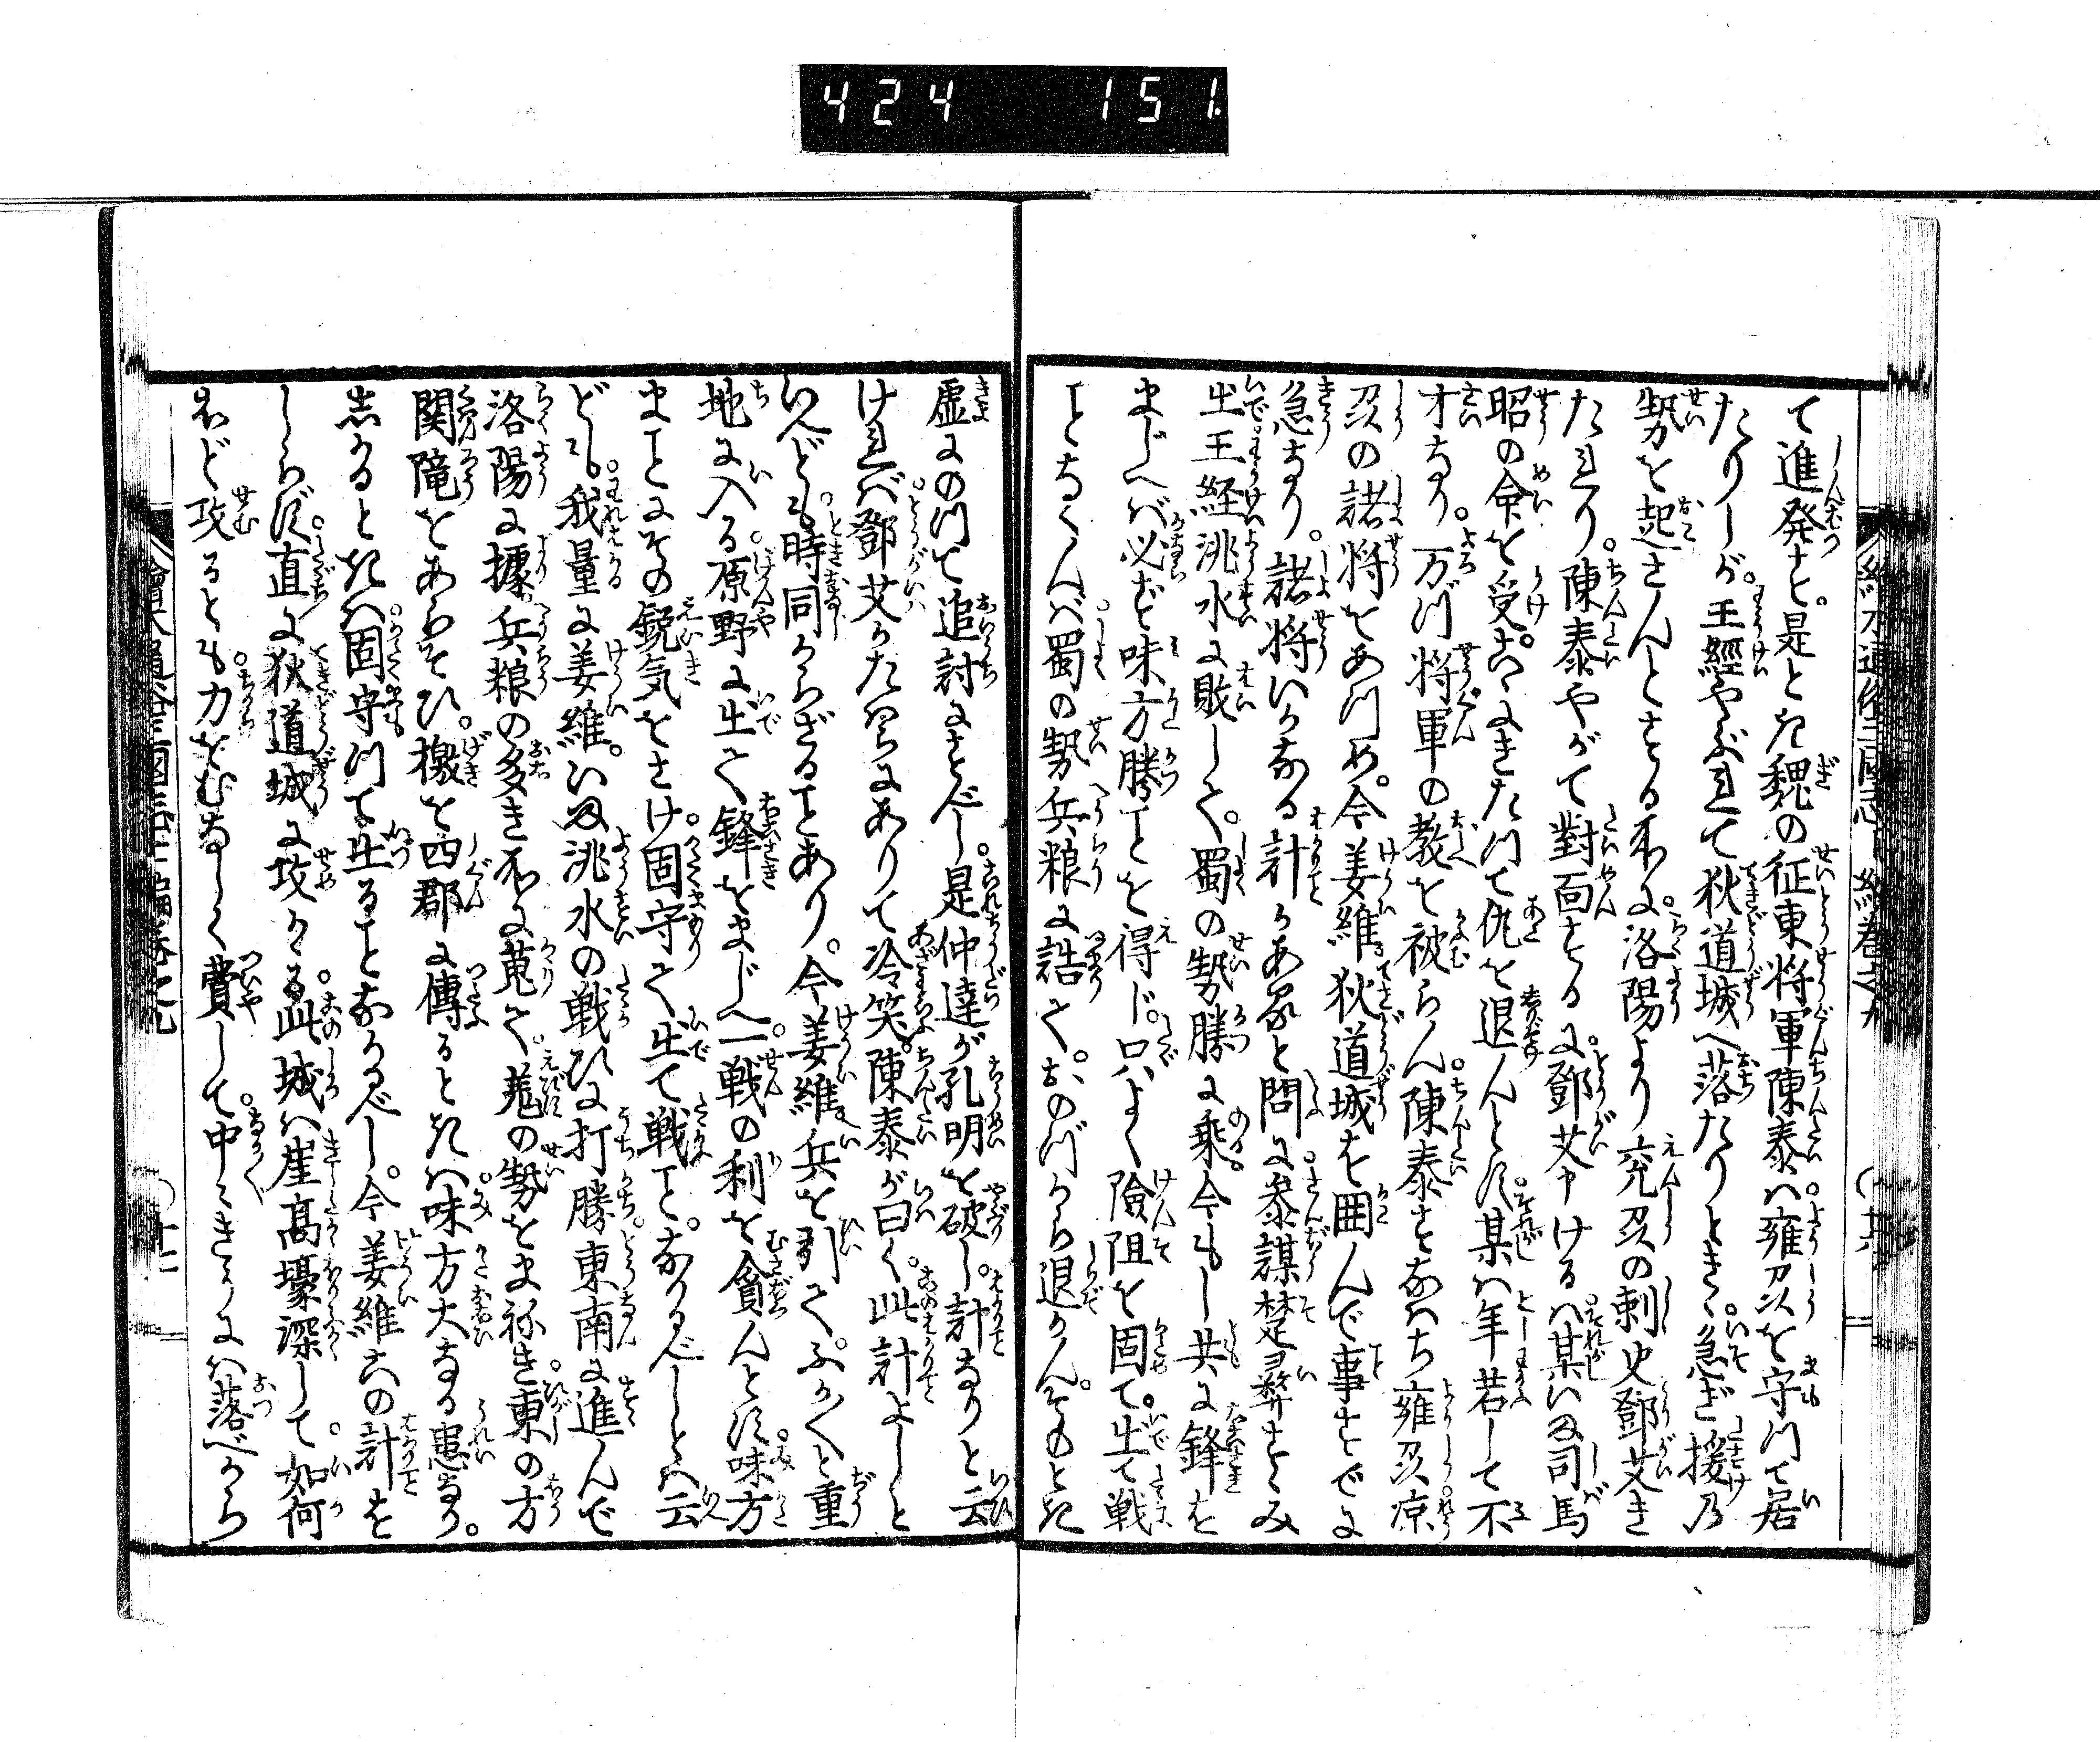 424 151
て進発す。是とき魏の征東将軍陳泰ハ。雍州を守つて居
たりしが。王經やぶれて狄道城へ落たりときゝ。急ぎ援乃
勢を起さんとする所に。洛陽より兗州の刺史鄧艾き
たれり。陳泰やがて對面するに。鄧艾申けるハ。某いま司馬
昭の命を受。こゝにきたつて仇を退んとす。某ハ年若して不
才なり。万づ将軍の教を被らん。陳泰すなハち雍州凉
州の諸将をあつめ。今姜維狄道城を囲んで事すでに
急なり。諸将いかなる計かあると問に。参謀楚彛すゝみ
出。王経洮水に敗して。蜀の勢勝に乗。今もし共に鋒を
まじへバ必ず味方勝ことを得じ。只よく險阻を固て。出て戦
ことなくんバ。蜀の勢兵粮に詰て。おのづから退かん。そのとき
虚にのつて追討にすべし。是仲達が孔明を破し。計なりと云
けれバ。鄧艾かたハらにありて冷笑。陳泰が曰く。此計よしと
いへども。時同からざることあり。今姜維兵を引て。ふかく重
地に入る。原野に出て鋒をまじへ。一戦の利を貪んとす。味方
まことにその鋭気をさけ。固守て出て戦こと。なかるべしとハ云
ども。我量に姜維。いま洮水の戦ひに打勝。東南に進んで
洛陽に據。兵粮の多き所に蒐て。羗の勢をまねき。東の方
関隴をあらそひ。檄を四郡に傳るときハ。味方大なる患なり。
志かるときハ。固守つて出ることなかるべし。今姜維この計を
しらず。直に狄道城に攻かゝる。此城ハ崖高壕深して。如何
ほど攻るとも。力をむなしく費して。中々きうにハ落べから
繪本通俗三國志七編巻之九